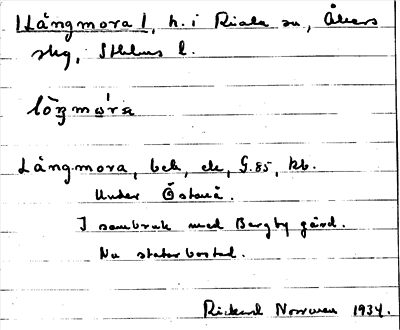 [Långmora], h. i Riala sn., Åkers
skg, Sthlms l.
Långmora, bek, ek, G. 85, kb.
Under Östanå.
I sambruk med Bergby gård.
Nu statarbostad.
Rickard 1934.